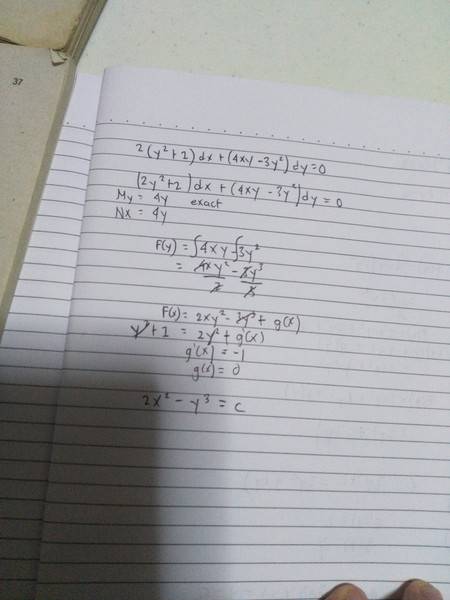 37
2(y²+1)dx+(4xy-3y²)dy=0
(2y²+2)dx+(4xy-3y²)dy=0
My = 4y exact
Nx = 4y
F(y) = ∫4xy-∫3y²
= 4xy²/2 - 3y³/3
F(x) = 2xy² - 3y³ + g(x)
y²+1 = 2y² + g(x)
g'(x) = -1
g(x) = 0
2x² - y³ = c